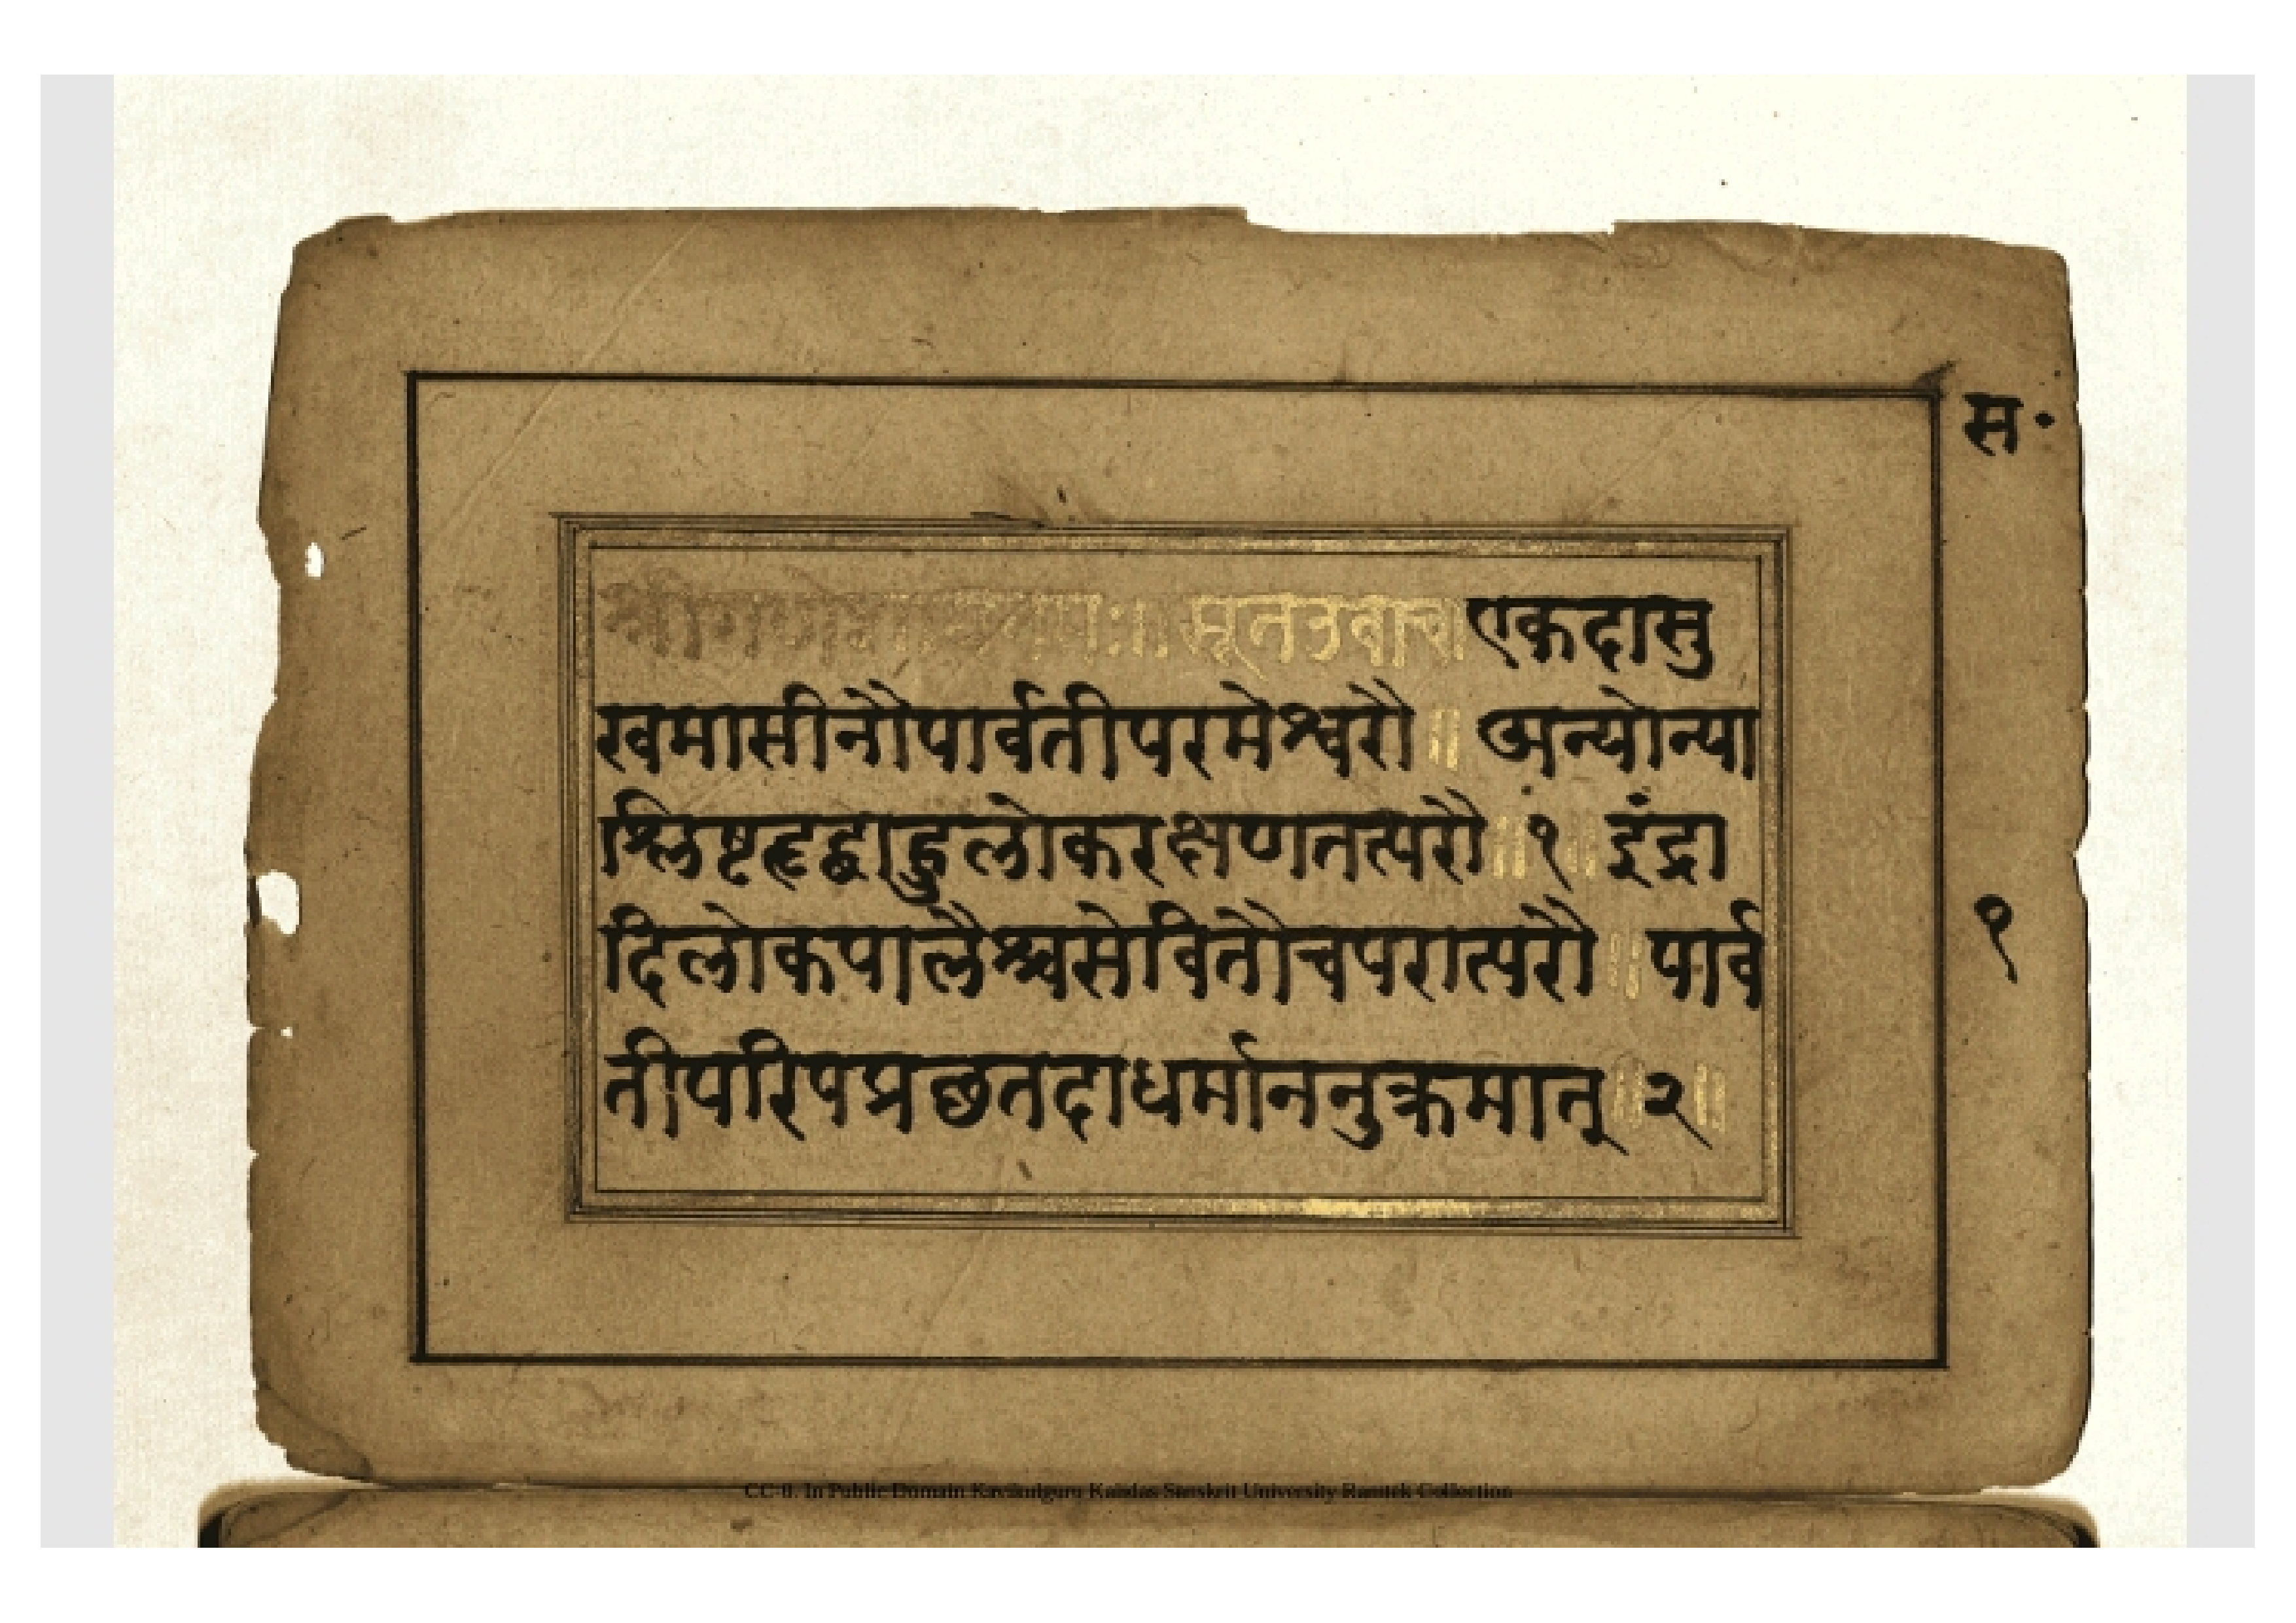 स॰
श्रीगणेशाय नमः ।। सूतउवाच एकदासु
खमासीनौपार्वतीपरमेश्वरौ ॥ अन्योन्या
श्लिष्टहृद्बाहुलोकरक्षणतत्परौ ॥ १ ॥ इंद्रा
दिलोकपालैश्चसेवितौचपरात्परौ ॥ पार्व
तीपरिपप्रछतदाधर्माननुक्रमात् ॥ २ ॥
१
CC-0. In Public Domain Kavikulguru Kalidas Sanskrit University Ramtek Collection